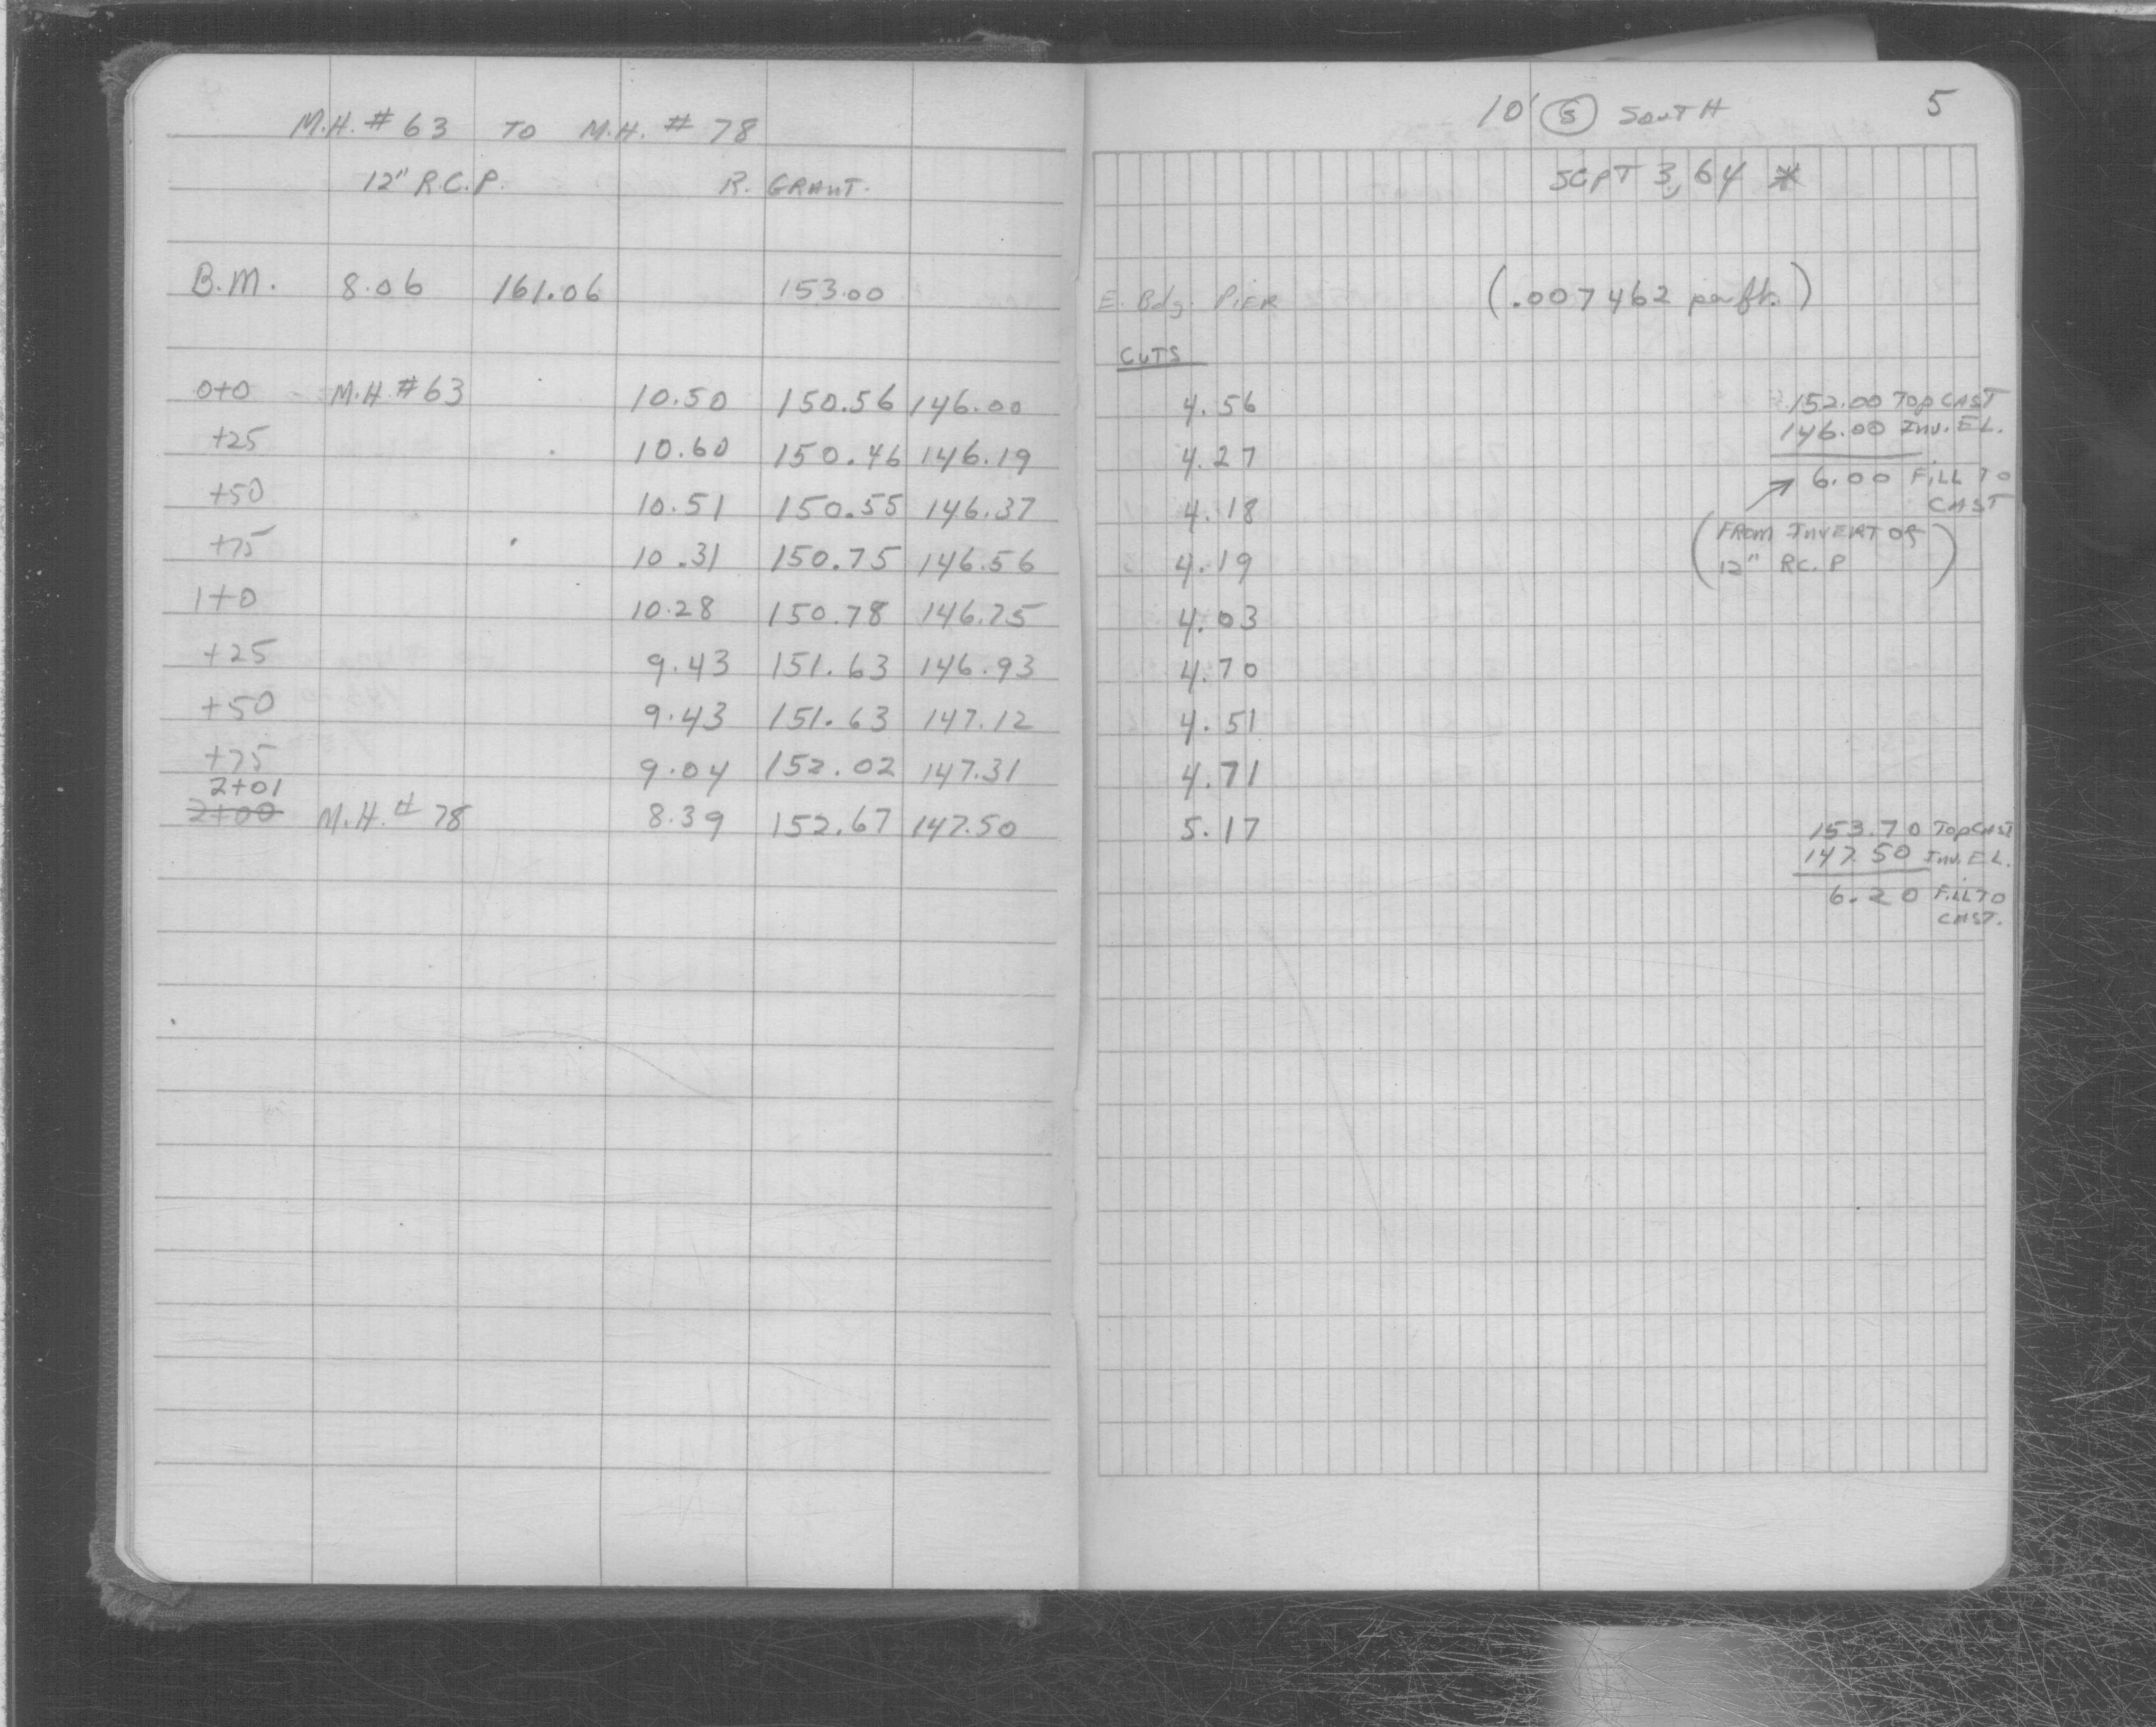 M.H. # 63 TO M.H. # 78
12" R.C.P. R. GRANT.
B.M. 8.06 161.06 153.00
0+0 M.H. #63 10.50 150.56 146.00
+25 10.60 150.46 146.19
+50 10.51 150.55 146.37
+75 10.31 150.75 146.56
1+0 10.28 150.78 146.75
+25 9.43 151.63 146.93
+50 9.43 151.63 147.12
+75 9.04 152.02 147.31
2+01
2+00 M.H. # 78 8.39 152.67 147.50
10' S SOUTH 5
SEPT 3, 64 *
E. Bdg. PIER (.007462 per ft.)
CUTS
4.56 152.00 TOP CAST
146.00 INV. EL.
4.27
6.00 FILL TO
CAST
4.18
(FROM INVERT OF
12" R.C.P)
4.19
4.03
4.70
4.51
4.71
5.17 153.70 TOP CAST
147.50 INV. EL.
6.20 FILL TO
CAST.